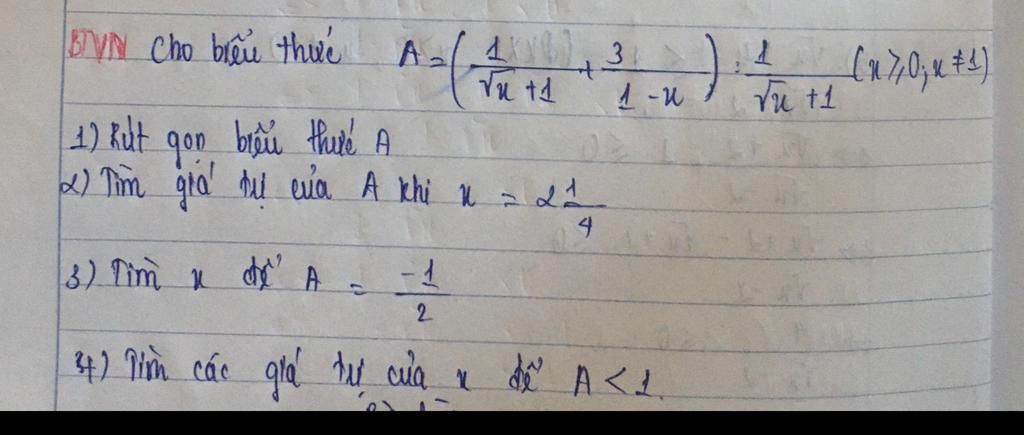 BTVN Cho biểu thức A = (1/(√x + 1) + 3/(1 - x)) : 1/(√x + 1) (x ≥ 0, x ≠ 1)
1) Rút gọn biểu thức A
2) Tìm giá trị của A khi x = 2 1/4
3) Tìm x để A = -1/2
4) Tìm các giá trị của x để A < 1.